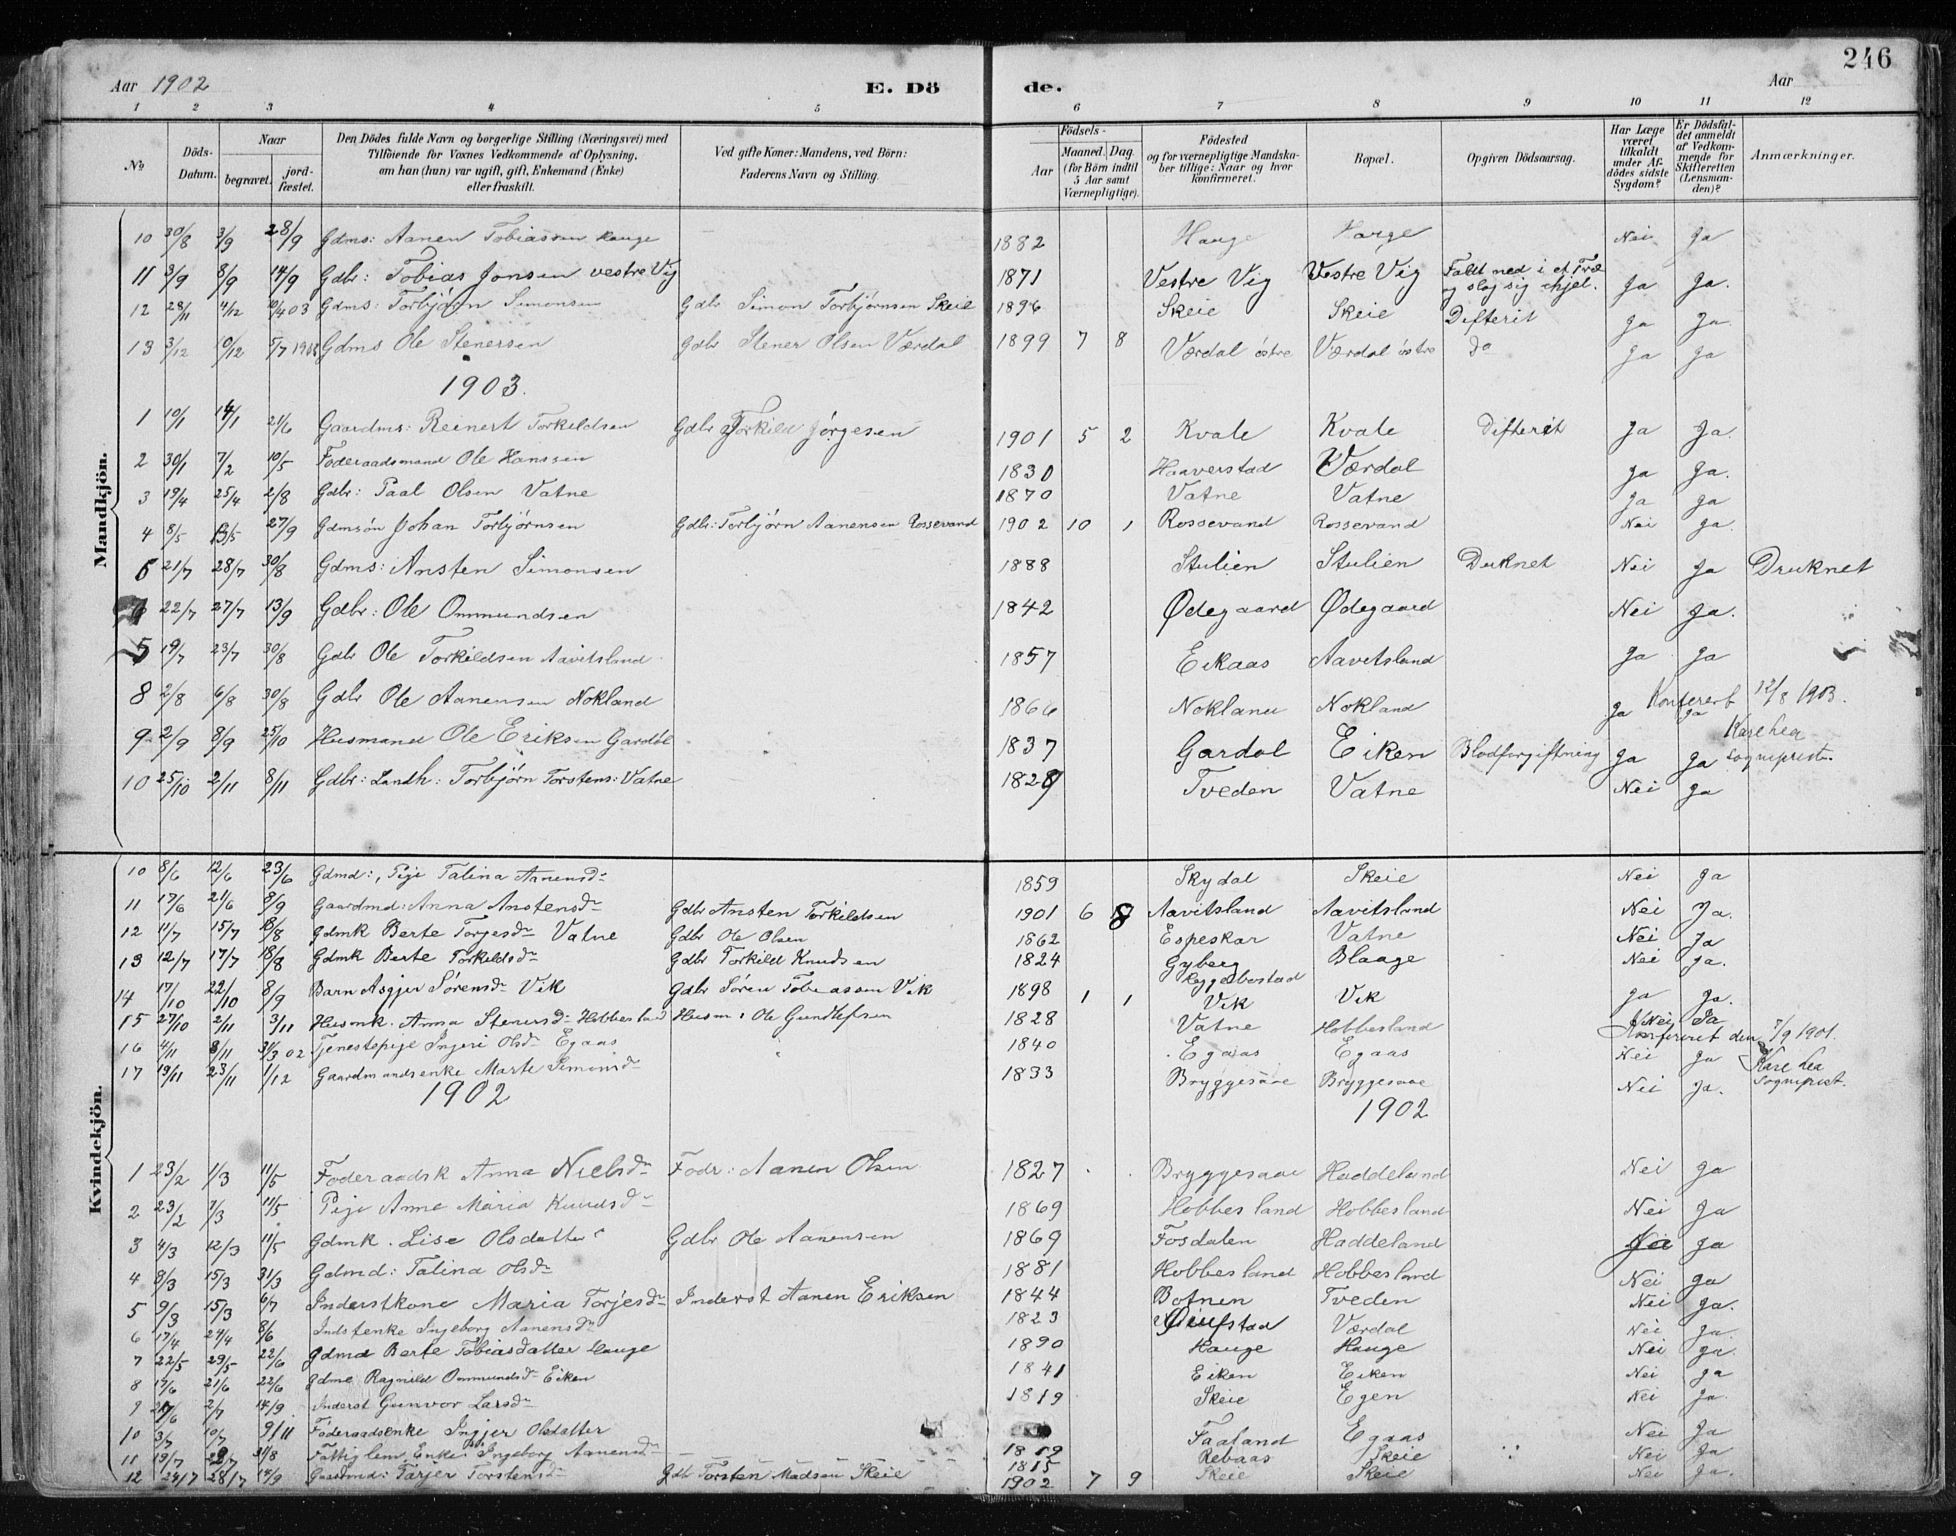 246
Aar 1902 E. Dö de. Aar
1 2 3 4 5 6 7 8 9 10 11 12
No. Döds-Datum. Naar begravet. jord-fæstet. Den Dödes fulde Navn og borgerlige Stilling (Næringsvei) med Tilföiende for Voxnes Vedkommende af Oplysning, om han (hun) var ugift, gift, Enkemand (Enke) eller fraskilt. Ved gifte Koner: Mandens, ved Börn: Faderens Navn og Stilling. Födsels- Aar Maaned. Dag (for Börn indtil 5 Aar samt Værnepligtige). Födested og for værnepligtige Mandska-ber tillige: Naar og hvor konfirmeret. Bopæl. Opgiven Dödsaarsag. Har Læge været tilkaldt under Af-dödes sidste Sygdom? Er Dödsfal-det anmeldt af Vedkom-mende for Skifteretten (Lensman-den)? Anmærkninger.
Mandkjön.
10 30/8 3/9 28/9 Gdms: Aanen Tobiassen Hauge 1882 Hauge Hauge Nei Ja
11 3/9 8/9 14/9 Gdbr: Tobias Jonsen vestre Vig 1871 Vestre Vig Vestre Vig Faldt ned i et Træ og slog sig ihjel. Ja Ja.
12 28/11 4/12 10/4 03 Gdms: Torbjørn Simonsen Gdbr Simon Torbjørnsen Skeie 1896 Skeie Skeie Difterit Ja Ja.
13 3/12 10/12 5/7 1903 Gdms Ole Stenersen Gdbr Stener Olsen Værdal 1899 7 8 Værdal östre Værdal östre Do Ja Ja
1903.
1 10/1 14/1 21/6 Gaardms: Reinert Torkildsen Gdbr Torkild Jørgesen 1901 5 2 Kvale Kvale Difterit Ja Ja.
2 30/1 7/2 10/5 Føderaadsmand Ole Hanssen 1830 Haaverstad Værdal Ja Ja.
3 19/4 25/4 2/8 Gdbr: Paal Olsen Vatne 1870 Vatne Vatne Ja Ja
4 8/5 13/5 27/9 Gdmsøn Johan Torbjørnsen Gdbr: Torbjørn Aanensen Rossevand 1902 10 1 Rossevand Rossevand Nei Ja.
6 21/7 28/7 30/8 Gdms: Ansten Simonsen 1888 Stulien Stulien Duknet Nei Ja Druknet
22/7 27/7 13/9 Gdbr: Ole Ommundsen 1842 Ødegaard Ødegaard Nei Ja.
5 19/7 23/7 30/8 Gdbr Ole Torkildsen Aavitsland 1857 Eikaas Aavitsland Ja Ja
8 2/8 6/8 30/8 Gdbr Ole Aanensen Nokland 1866 Nokland Nokland Ja Ja Konfereret 12/8 1903.
9 2/9 8/9 25/10 Husmand Ole Eriksen Gardøl 1837 Gardal Eiken Blodforgiftning Ja Ja Kasehea Sogneprest.
10 25/10 2/11 8/11 Gdbr: Landh: Torbjørn Torstens: Vatne 1829 Tveden Vatne Nei Ja
Kvindekjön.
10 8/6 12/6 23/6 Gdmd:, Pige Talina Aanensdr 1859 Skydal Skeie Nei Ja
11 17/6 21/6 8/9 Gaardmd: Anna Anstensdr Gdbr Ansten Torkildsen 1901 6 8 Aavitsland Aavitsland Nei Ja.
12 11/7 15/7 18/8 Gdmk Berte Torjesdr Vatne Gdbr Ole Olsen 1862 Espeskar Vatne Nei Ja
13 12/7 17/7 18/8 Gdmk Berte Torkildsdr Gdbr Torkild Knudsen 1824 Gyberg Blaage Nei Ja.
14 17/10 22/10 8/9 Barn Asgjer Sørensdr Vik Gdbr Søren Tobiassen Vik 1898 1 1 Vik Vik Ja Ja.
15 27/10 2/11 3/11 Husmk. Anna Stenersdr Hobbesland Husm: Ole Gundlefsen 1828 Vatne Hobbesland Nei Ja
Konfereret den 7/9 1901.
16 4/11 8/11 31/3 02 Tjenestepige Ingeri Olsdr Egaas 1840 Egaas Egaas Nei Ja Kasehea
17 19/11 23/11 1/12 Gaardmandsenke Marte Simonsdr 1833 Bryggesaae Bryggesaae Nei Ja. Sogneprest.
1902 1902
1 23/2 1/3 11/5 Foderaadsk Anna Nielsdr Fodr: Aanen Olsen 1827 Bryggesaae Haddeland Nei Ja
2 23/2 7/3 11/5 Pige Anne Maria Knudsdr 1869 Hobbesland Hobbesland Nei Ja
3 4/3 12/3 11/5 Gdmk. Lise Olsdatter Gdbr Ole Aanensen 1869 Fosdalen Haddeland Nei Ja
4 9/3 15/3 31/3 Gdmd: Talina Olsdr 1881 Hobbesland Hobbesland Nei Ja
5 9/3 15/3 6/7 Inderstkone Maria Torjesdr Inderst Aanen Eriksen 1844 Botnen Tveden Nei Ja.
6 17/4 24/4 8/6 Indstenke Ingeborg Aanensdr 1823 Værdal Nei Ja.
7 22/5 29/5 22/6 Gdmd Berte Tobiasdatter Hauge 1890 Hauge Hauge Nei Ja.
8 17/6 21/6 22/6 Gdme Ragnild Ommundsdr Eiken 1841 Eiken Eiken Nei Ja
9 2/7 14/9 Inderst Gunvor Larsdr 1819 Skeie Egen Nei Ja.
10 3/7 10/7 9/11 Føderaadsenke Ingjer Olsdatter Faaland Egaas Nei Ja
11 19/7 31/8 Fattiglem, Enke Ingeborg Aanensdr 1815 Rebaas Skeie Nei Ja
12 24/7 28/7 14/9 Gaardmd: Tarjer Torstensdr Gdbr Torsten Madsen Skeie 1902 7 9 Skeie Skeie Nei Ja.